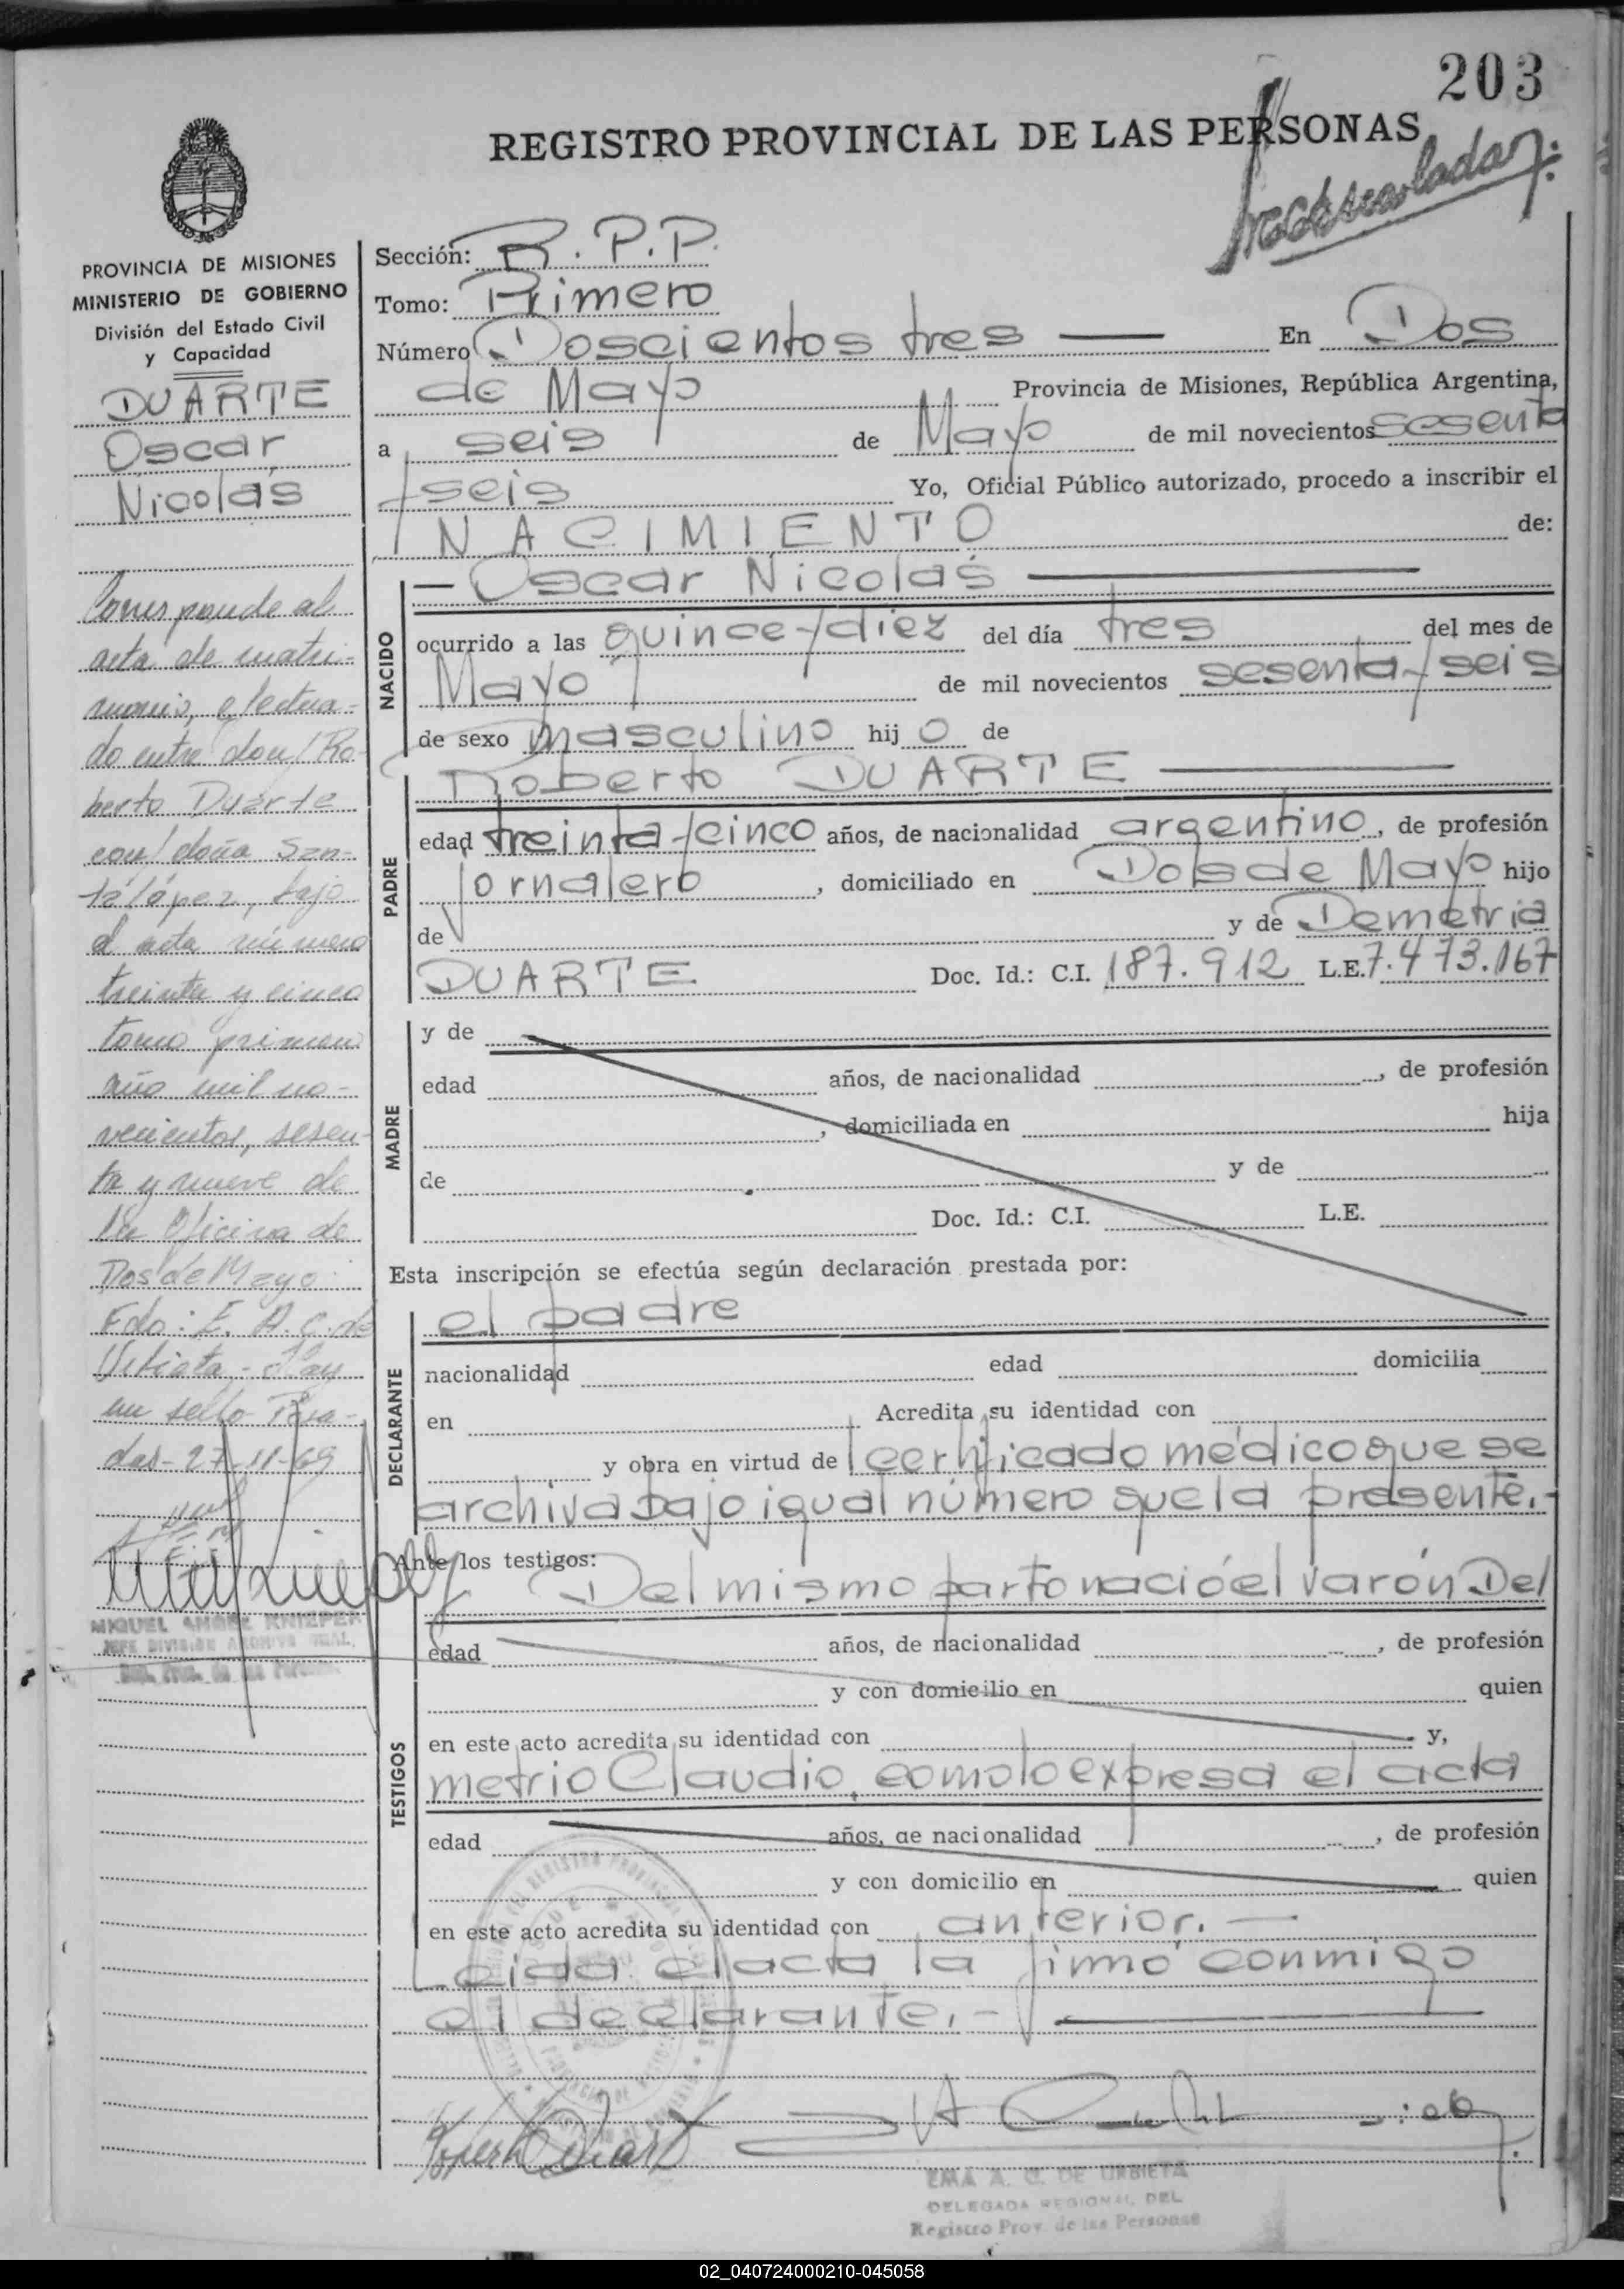 203
REGISTRO PROVINCIAL DE LAS PERSONAS
PROVINCIA DE MISIONES
MINISTERIO DE GOBIERNO
División del Estado Civil
y Capacidad
DUARTE
Oscar
Nicolás
Corresponde al
acta de matri-
monio, efectua-
do entre don/ Ro-
berto Duarte
con/ doña San-
ta López, bajo
el acta número
treinta y cinco
tomo primero
año mil no-
vecientos, sesen-
ta y nueve de
la Oficina de
Dos de Mayo.
Fdo: E. A. C. de
Urbieta.- Hay
un sello Posa-
das- 27-11-69
MIQUEL ANGEL KNIEPER
JEFE DIVISION ARCHIVO GRAL.
Sección: R. P. P.
Tomo: Primero
Número Doscientos tres — En Dos
de Mayo Provincia de Misiones, República Argentina,
a seis de Mayo de mil novecientos sesenta
y seis Yo, Oficial Público autorizado, procedo a inscribir el
NACIMIENTO de:
NACIDO
— Oscar Nicolás —
ocurrido a las quince y diez del día tres del mes de
Mayo de mil novecientos sesenta y seis
de sexo masculino hij o de
PADRE
Roberto DUARTE —
edad treinta y cinco años, de nacionalidad argentino, de profesión
jornalero, domiciliado en Dos de Mayo hijo
de y de Demetria
DUARTE Doc. Id.: C.I. 187.912 L.E. 7.473.167
MADRE
y de
edad años, de nacionalidad , de profesión
, domiciliada en hija
de y de
Doc. Id.: C.I. L.E.
Esta inscripción se efectúa según declaración prestada por:
DECLARANTE
el padre
nacionalidad edad domicilia
en Acredita su identidad con
y obra en virtud de l certificado médico que se
archiva bajo igual número que la presente.-
Ante los testigos:
TESTIGOS
Del mismo parto nació el varón De/
edad años, de nacionalidad , de profesión
y con domicilio en quien
en este acto acredita su identidad con y,
metrio Claudio, como lo expresa el acta
edad años, de nacionalidad , de profesión
y con domicilio en quien
en este acto acredita su identidad con anterior. —
Leida el acta la firmó conmigo
el declarante.- —
EMA A. C. DE URBIETA
DELEGADA REGIONAL DEL
Registro Prov. de las Personas
02_040724000210-045058